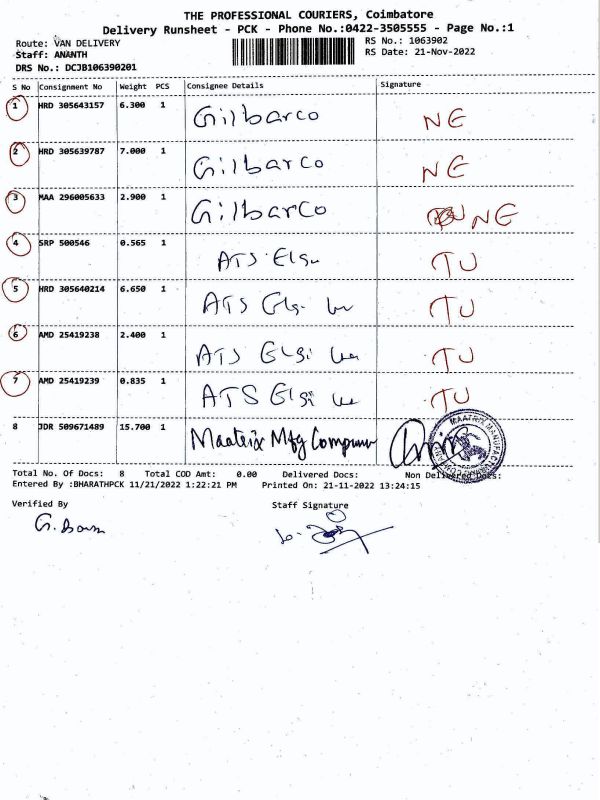 THE PROFESSIONAL COURIERS, Coimbatore
Delivery Runsheet - PCK - Phone No.:0422-3505555 - Page No.:1
Route: VAN DELIVERY
RS No.: 1063902
Staff: ANANTH
RS Date: 21-Nov-2022
DRS No.: DCJB106390201
S No Consignment No Weight PCS Consignee Details Signature
1 HRD 305643157 6.300 1 Gilbarco NE
2 HRD 305639787 7.000 1 Gilbarco NE
3 MAA 296005633 2.900 1 Gilbarco NE
4 SRP 500546 0.565 1 ATS TU
5 HRD 305640214 6.650 1 ATS TU
6 AMD 25419238 2.400 1 ATS Elgi TU
7 AMD 25419239 0.835 1 ATS Elgi TU
8 JDR 509671489 15.700 1 Maatrix Mfg Company
MAATRIX MANUFACTURING COMPANY
Total No. Of Docs: 8 Total COD Amt: 0.00 Delivered Docs: Non Delivered Docs:
Entered By :BHARATHPCK 11/21/2022 1:22:21 PM Printed On: 21-11-2022 13:24:15
Verified By Staff Signature